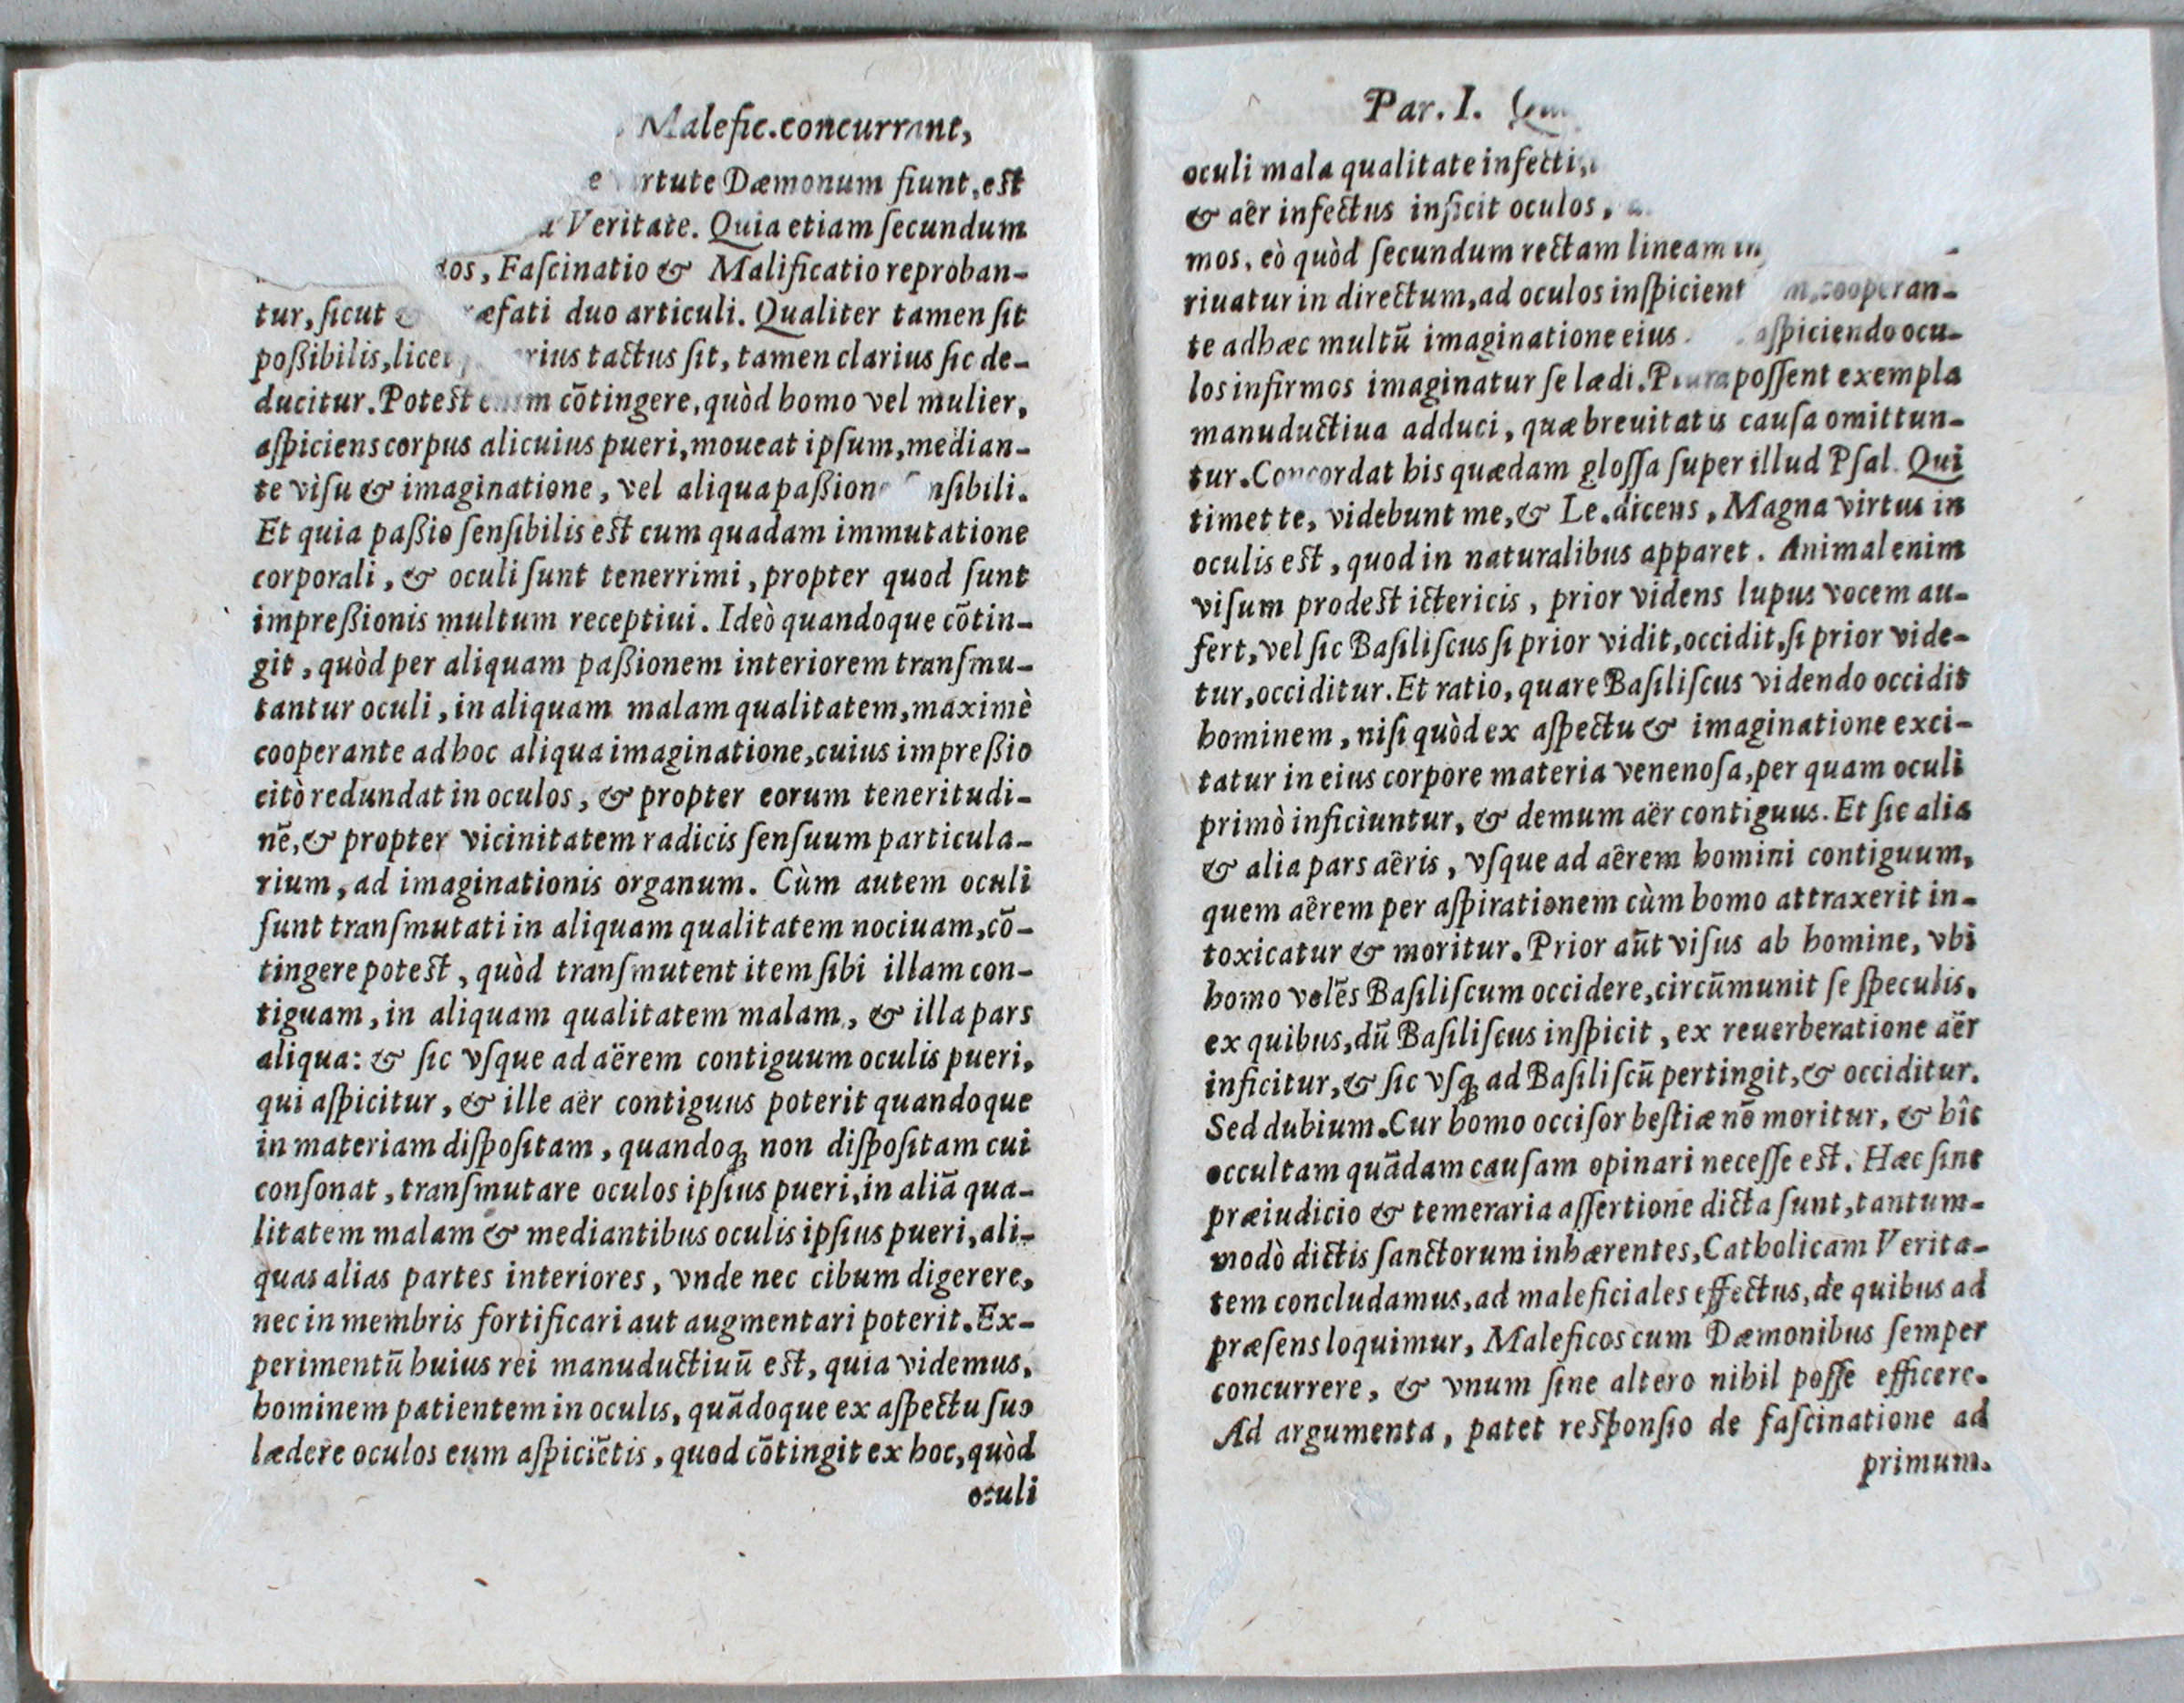 Malefic. concurrant,
Dæmonum fiunt, eſt
Veritate. Quia etiam ſecundum
Faſcinatio & Malificatio reproban-
tur, ſicut duo articuli. Qualiter tamen ſit
poßibilis, tactus ſit, tamen clarius ſic de-
ducitur. Poteſt cõtingere, quòd homo vel mulier,
aſpiciens corpus alicuius pueri, moueat ipſum, median-
te viſu & imaginatione, vel aliqua
Et quia paßio ſenſibilis eſt cum quadam immutatione
corporali, & oculi ſunt tenerrimi, propter quod ſunt
impreßionis multum receptiui. Ideò quandoque cõtin-
git, quòd per aliquam paßionem interiorem tranſmu-
tantur oculi, in aliquam malam qualitatem, maximè
cooperante ad hoc aliqua imaginatione, cuius impreßio
citò redundat in oculos, & propter eorum teneritudi-
nẽ, & propter vicinitatem radicis ſenſuum particula-
rium, ad imaginationis organum. Cùm autem oculi
ſunt tranſmutati in aliquam qualitatem nociuam, cõ-
tingere poteſt, quòd tranſmutent item ſibi illam con-
tiguam, in aliquam qualitatem malam, & illa pars
aliqua: & ſic vſque ad aërem contiguum oculis pueri,
qui aſpicitur, & ille aër contiguus poterit quandoque
in materiam diſpoſitam, quandoq; non diſpoſitam cui
conſonat, tranſmutare oculos ipſius pueri, in aliã qua-
litatem malam & mediantibus oculis ipſius pueri, ali-
quas alias partes interiores, vnde nec cibum digerere,
nec in membris fortificari aut augmentari poterit. Ex-
perimentũ huius rei manuductiuũ eſt, quia videmus,
hominem patientem in oculis, quãdoque ex aſpectu ſuo
lædere oculos eum aſpiciẽtis, quod cõtingit ex hoc, quòd
oculi
Par. I.
oculi mala qualitate
& aêr infectus inficit oculos,
mos, eò quòd ſecundum rectam lineam
riuatur in directum, ad oculos cooperan-
te ad hæc multũ imaginatione eius aſpiciendo ocu-
los infirmos imaginatur ſe lædi. poſſent exempla
manuductiua adduci, quæ breuitatis cauſa omittun-
tur. Concordat his quædam gloſſa ſuper illud Pſal. Qui
timet te, videbunt me, & Le. dicens, Magna virtus in
oculis eſt, quod in naturalibus apparet. Animal enim
viſum prodeſt ictericis, prior videns lupus vocem au-
fert, vel ſic Baſiliſcus ſi prior vidit, occidit, ſi prior vide-
tur, occiditur. Et ratio, quare Baſiliſcus videndo occidit
hominem, niſi quòd ex aſpectu & imaginatione exci-
tatur in eius corpore materia venenoſa, per quam oculi
primò inficiuntur, & demum aër contiguus. Et ſic alia
& alia pars aêris, vſque ad aêrem homini contiguum,
quem aêrem per aſpirationem cùm homo attraxerit in-
toxicatur & moritur. Prior aũt viſus ab homine, vbi
homo volẽs Baſiliſcum occidere, circũmunit ſe ſpeculis,
ex quibus, dũ Baſiliſcus inſpicit, ex reuerberatione aër
inficitur, & ſic vſq; ad Baſiliſcũ pertingit, & occiditur.
Sed dubium. Cur homo occiſor beſtiæ nõ moritur, & hîc
occultam quãdam cauſam opinari neceſſe eſt. Hæc ſine
præiudicio & temeraria aſſertione dicta ſunt, tantum-
modò dictis ſanctorum inhærentes, Catholicam Verita-
tem concludamus, ad maleficiales effectus, de quibus ad
præſens loquimur, Maleficos cum Dæmonibus ſemper
concurrere, & vnum ſine altero nihil poſſe efficere.
Ad argumenta, patet reſponſio de faſcinatione ad
primum.